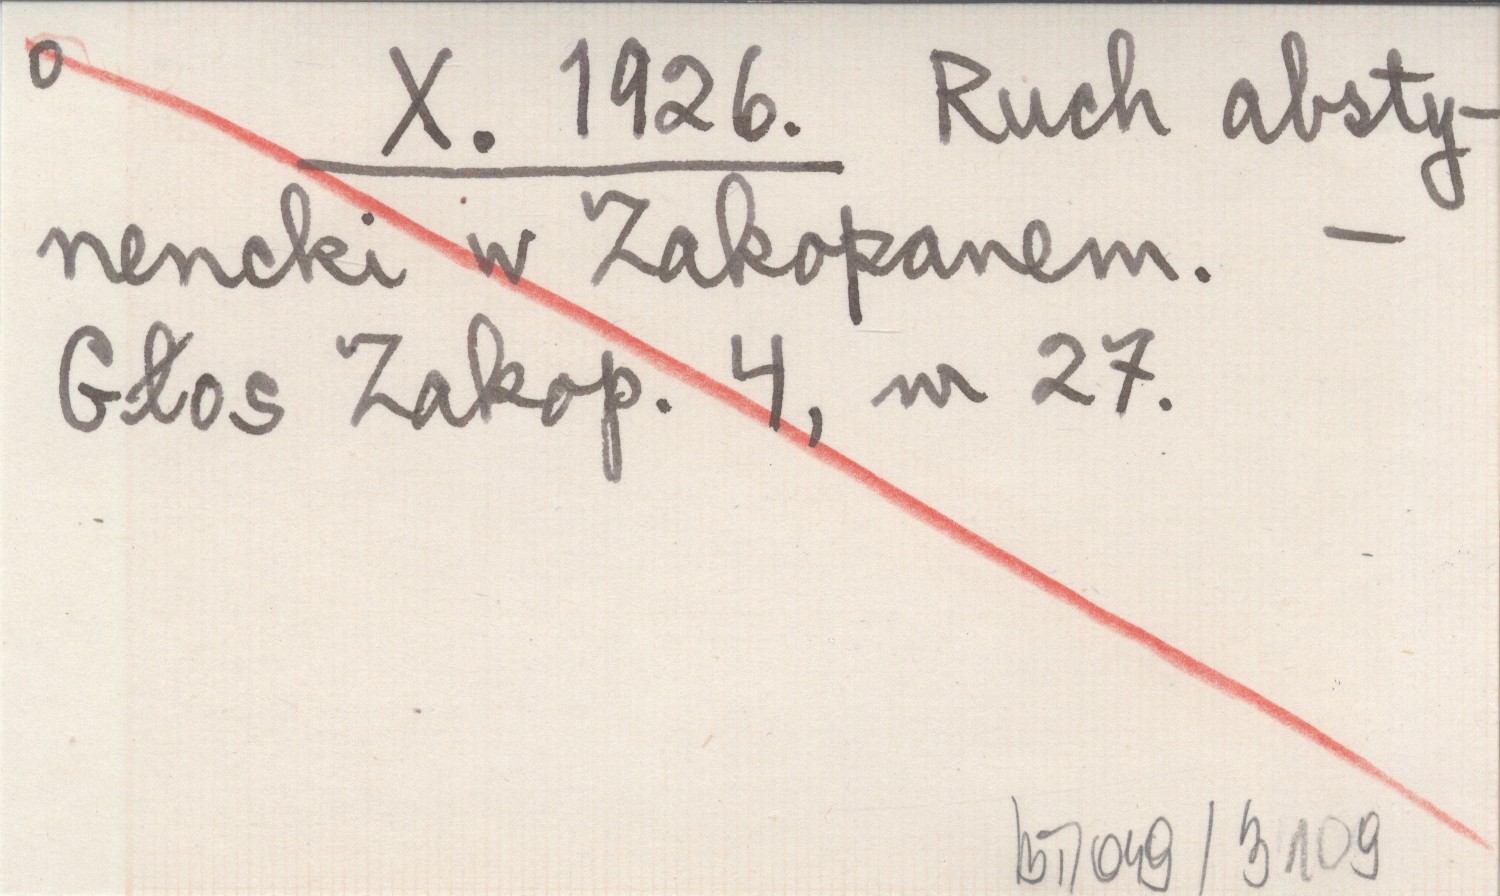 o X. 1926. Ruch absty-
nencki w Zakopanem. —
Głos Zakop. 4, nr 27.
049 / 3109